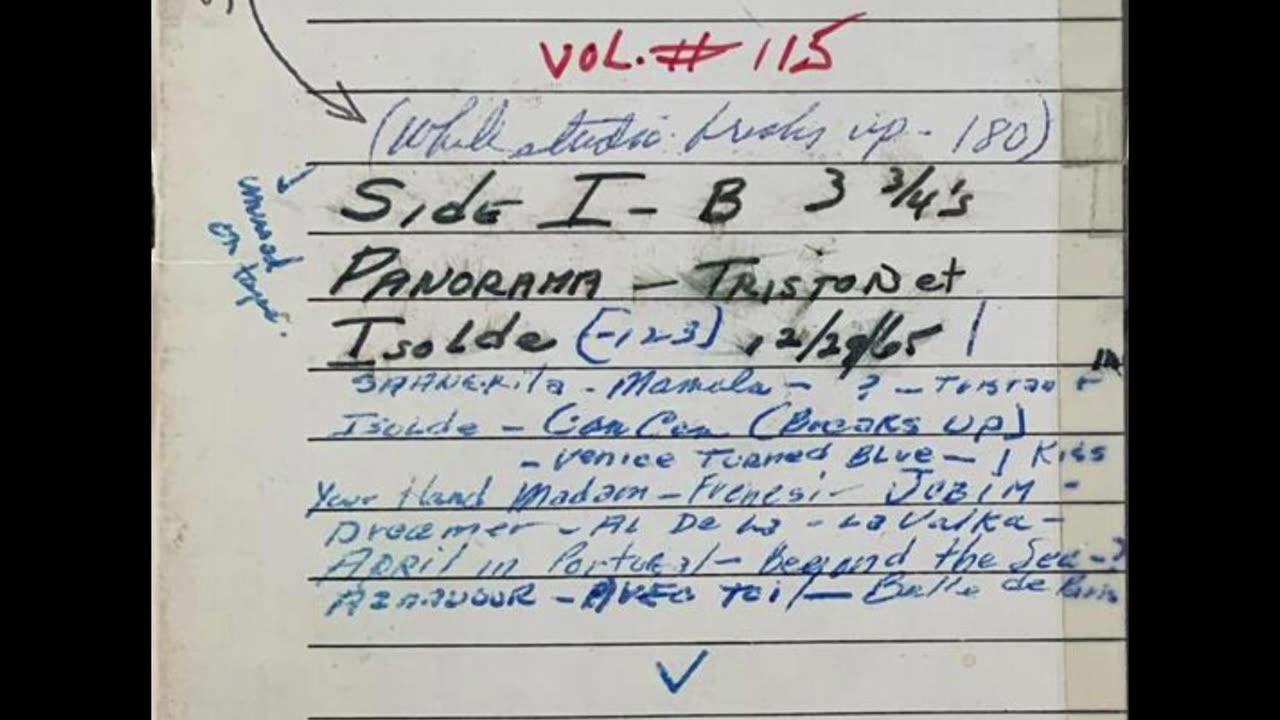 VOL. # 115
(While studio breaks up - 180)
Side I - B 3 3/4's
PANORAMA - TRISTON et
Isolde [-123] 12/29/65
on tape.
Mamula - ? -
Isolde - Can Can (Breaks up)
- Venice TURNED BLUE - I Kiss
Your Hand Madam - Frenesi - JOBIM -
Dreamer - AL De La - La Valka -
April in Portugal - Beyond the Sea - ?
AZNAVOUR - AVEC toi - Belle de Paris